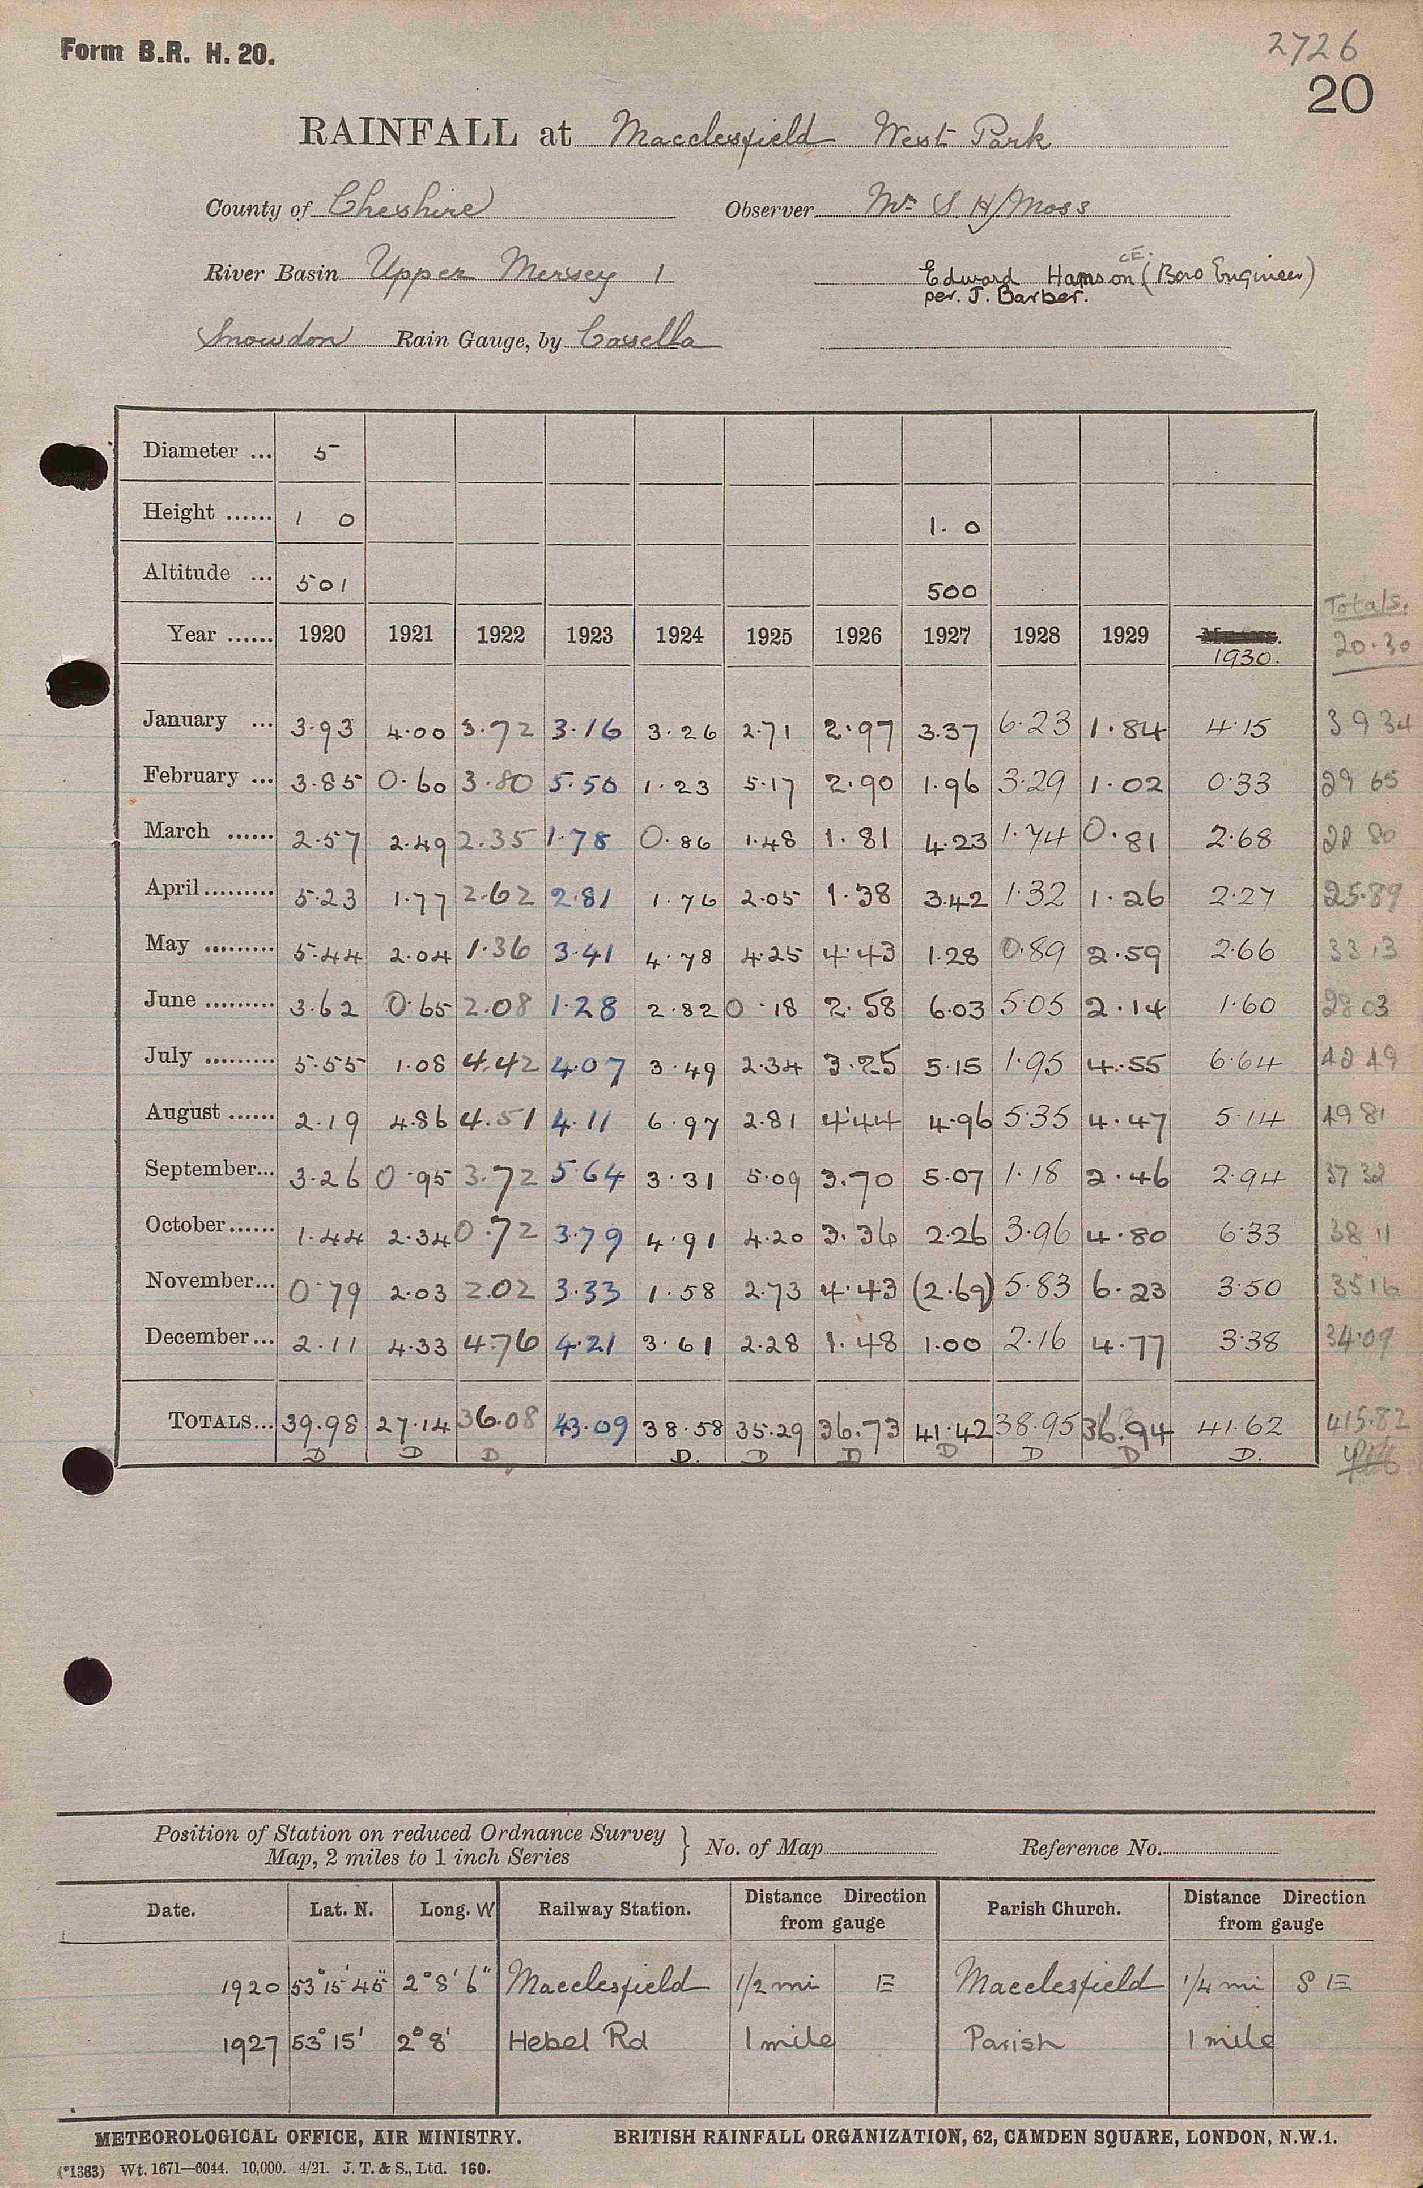 Form B.R. H. 20.
2726
20
RAINFALL at Macclesfield West Park
County of Cheshire Observer Mr. S. H. Moss
CE.
River Basin Upper Mersey 1 Edward Hamson (Boro Engineer)
per. J. Barber.
Snowdon Rain Gauge, by Cassella
Diameter ... 5
Height ...... 1 0 1. 0
Altitude ... 501 500
Totals.
Year ...... 1920 1921 1922 1923 1924 1925 1926 1927 1928 1929 Means. 20.30
1930.
January ... 3.93 4.00 3.72 3.16 3.26 2.71 2.97 3.37 6.23 1.84 4.15 39 34
February ... 3.85 0.60 3.80 5.50 1.23 5.17 2.90 1.96 3.29 1.02 0.33 29 65
March ...... 2.57 2.49 2.35 1.78 0.86 1.48 1.81 4.23 1.74 0.81 2.68 22 80
April ......... 5.23 1.77 2.62 2.81 1.76 2.05 1.38 3.42 1.32 1.26 2.27 25.89
May ......... 5.44 2.04 1.36 3.41 4.78 4.25 4.43 1.28 0.89 2.59 2.66 33 13
June ......... 3.62 0.65 2.08 1.28 2.82 0.18 2.58 6.03 5.05 2.14 1.60 28 03
July ......... 5.55 1.08 4.42 4.07 3.49 2.34 3.25 5.15 1.95 4.55 6.64 42 49
August ...... 2.19 4.86 4.51 4.11 6.97 2.81 4.44 4.96 5.35 4.47 5.14 49 81
September... 3.26 0.95 3.72 5.64 3.31 5.09 3.70 5.07 1.18 2.46 2.94 37 32
October...... 1.44 2.34 0.72 3.79 4.91 4.20 3.36 2.26 3.96 4.80 6.33 38 11
November... 0.79 2.03 2.02 3.33 1.58 2.73 4.43 (2.69) 5.83 6.23 3.50 35 16
December... 2.11 4.33 4.76 4.21 3.61 2.28 1.48 1.00 2.16 4.77 3.38 34.09
TOTALS... 39.98 27.14 36.08 43.09 38.58 35.29 36.73 41.42 38.95 36.94 41.62 415.82
D D D D. D D D D D D.
Position of Station on reduced Ordnance Survey
Map, 2 miles to 1 inch Series } No. of Map Reference No.
Date. Lat. N. Long. W Railway Station. Distance Direction from gauge Parish Church. Distance Direction from gauge
1920 53° 15' 45" 2° 8' 6" Macclesfield 1/2 mi E Macclesfield 1/4 mi S E
1927 53° 15' 2° 8' Hebel Rd 1 mile Parish 1 mile
METEOROLOGICAL OFFICE, AIR MINISTRY. BRITISH RAINFALL ORGANIZATION, 62, CAMDEN SQUARE, LONDON, N.W.1.
(*1383) Wt. 1671—6044. 10,000. 4/21. J. T. & S., Ltd. 160.